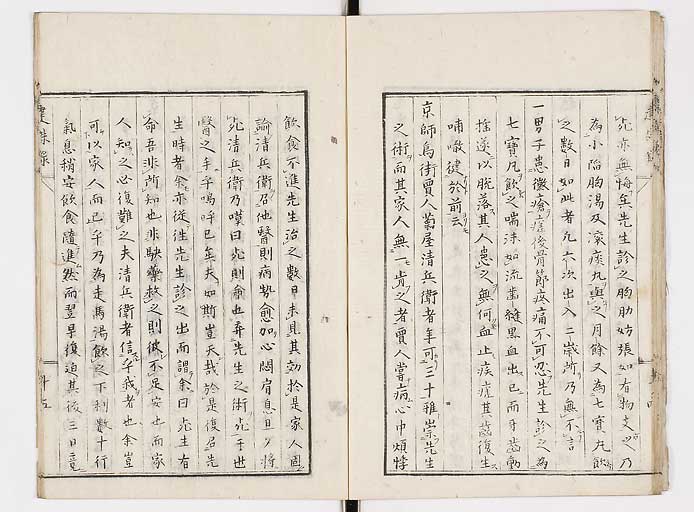 死亦無悔矣先生診之胸肋妨張如有物支之乃
為小陷胸湯及滾痰丸與之月餘又為七寶丸飲
之數日如此者凡六次出入二歲所乃無不言
一男子患黴瘡瘡後骨節疼痛不可忍先生診之為
七寶丸飲之喘沫如流齒縫黒血出已而牙齒動
搖遂以脱落其人患之無何血止疾瘥其齒復生
哺噉健於前云
京師烏街賈人菊屋清兵衛者年可三十雅崇先生
之術而其家人無一肯之者賈人嘗病心中煩悸
飲食不進先生治之數日未見其効於是家人固
論清兵衛召他醫則病勢愈加心悶肩息且夕將
死清兵衛乃嘆曰死則命也弃先生之術死乎世
醫之手乎嗚呼已矣夫如斯豈天哉於是復召先
生時者余亦從往先生診之出而謂余曰死生有
命吾非所知也非駃藥救之則彼不足安也而家
人知之必復難之夫清兵衛者信乎我者也余豈
可以家人而已乎乃為走馬湯飲之下利數十行
氣息稍安飲食隨進然而翌是復迫其後三日竟
建殊錄